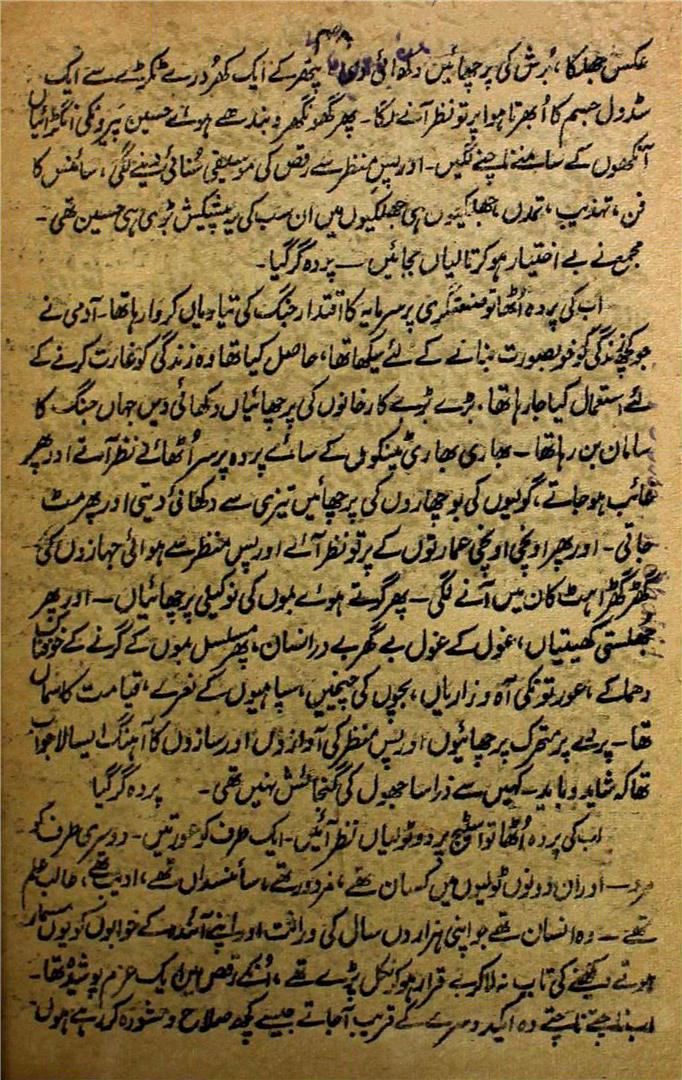 عکس جھلکا، بُرش کی پرچھائیں دکھائی دی۔ پتھر کے ایک کھُردرے ٹکڑے سے ایک
سڈول جسم کا اُبھرتا ہوا پرتو نظر آنے لگا۔ پھر گھونگھرو بندھے ہوئے حسین پیرونکی انگڑائیاں
آنکھوں کے سامنے ناچنے لگیں۔ اور پس منظر سے رقص کی موسیقی سُنائی دینے لگی، سائنس کا
فن، تہذیب، تمدن جھلکیوں ہی جھلکیوں میں ان سب کی پیشکیش بڑی ہی حسین تھی۔
مجمع نے بے اختیار ہو کر تالیاں بجائیں — پردہ گر گیا۔
اب کی پردہ اُٹھا تو صنعتگری پر سرمایہ کا اقتدار جنگ کی تیاریاں کروا رہا تھا۔ آدمی نے
جو کچھ زندگی کو خوبصورت بنانے کے لئے سیکھا تھا، حاصل کیا تھا وہ زندگی کو غارت کرنے کے
لئے استعمال کیا جا رہا تھا۔ بڑے بڑے کارخانوں کی پرچھائیاں دکھائی دیں جہاں جنگ کا
سامان بن رہا تھا۔ بھاری بھاری ٹینکوں کے سائے پردہ پر سر اُٹھائے نظر آتے اور پھر
غائب ہو جاتے، گولیوں کی بوچھاروں کی پرچھائیں تیزی سے دکھائی دیتی اور پھر مٹ
جاتی۔ اور پھر اونچی اونچی عمارتوں کے پرتو نظر آئے اور پس منظر سے ہوائی جہازوں کی
گھڑگھڑاہٹ کان میں آنے لگی۔ پھر گرتے ہوئے بموں کی نوکیلی پرچھائیاں — اور پھر
جھلستی کھیتیاں، غول کے غول بے گھر بے در انسان، پھر مسلسل بموں کے گرنے کے خوفناک
دھماکے، عورتونکی آہ و زاریاں، بچوں کی چیخیں، سپاہیوں کے نعرے، قیامت کا سماں
تھا۔ پردے پر متحرک پرچھائیوں اور پس منظر کی آوازوں اور سازوں کا آہنگ ایسا لاجواب
تھا کہ شاید و باید — کہیں سے ذرا سا جھول کی گنجائش نہیں تھی۔ پردہ گر گیا
اب کی پردہ اُٹھا تو اسٹیج پر دو ٹولیاں نظر آئیں۔ ایک طرف کو عورتیں۔ دوسری طرف کو
مرد — اور ان دونوں ٹولیوں میں کسان تھے، مزدور تھے، سائنسداں تھے، ادیب تھے، طالب علم
تھے — وہ انسان تھے جو اپنی ہزاروں سال کی وراثت اور اپنے آئندہ کے خوابوں کو یوں مسمار
ہوتے دیکھنے کی تاب نہ لا کر بے قرار ہو کر نکل پڑے تھے، اُنکے رقص میں ایک عزم پوشیدہ تھا۔
اب ناچتے ناچتے وہ ایکدوسرے کے قریب آ جاتے جیسے کچھ صلاح و مشورہ کر رہے ہوں